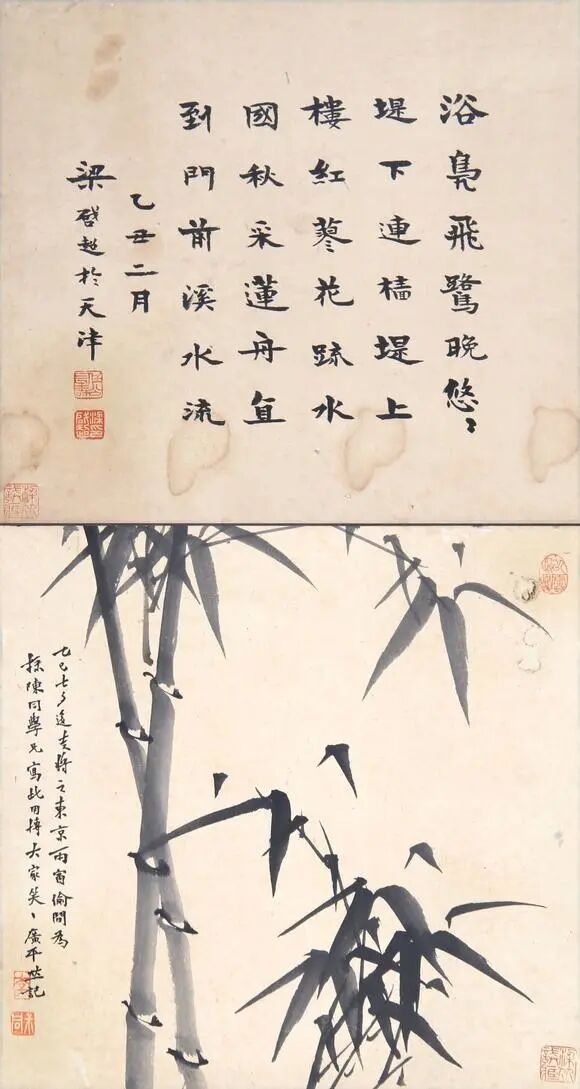 浴鳧飛鷺晚悠〻
堤下連檣堤上
樓紅蓼花疏水
國秋采蓮舟直
到門前溪水流
乙丑二月
梁啓超於天津
將之東京雨窗偷閒為
陳同學兄寫此以博大家笑〻廣平記